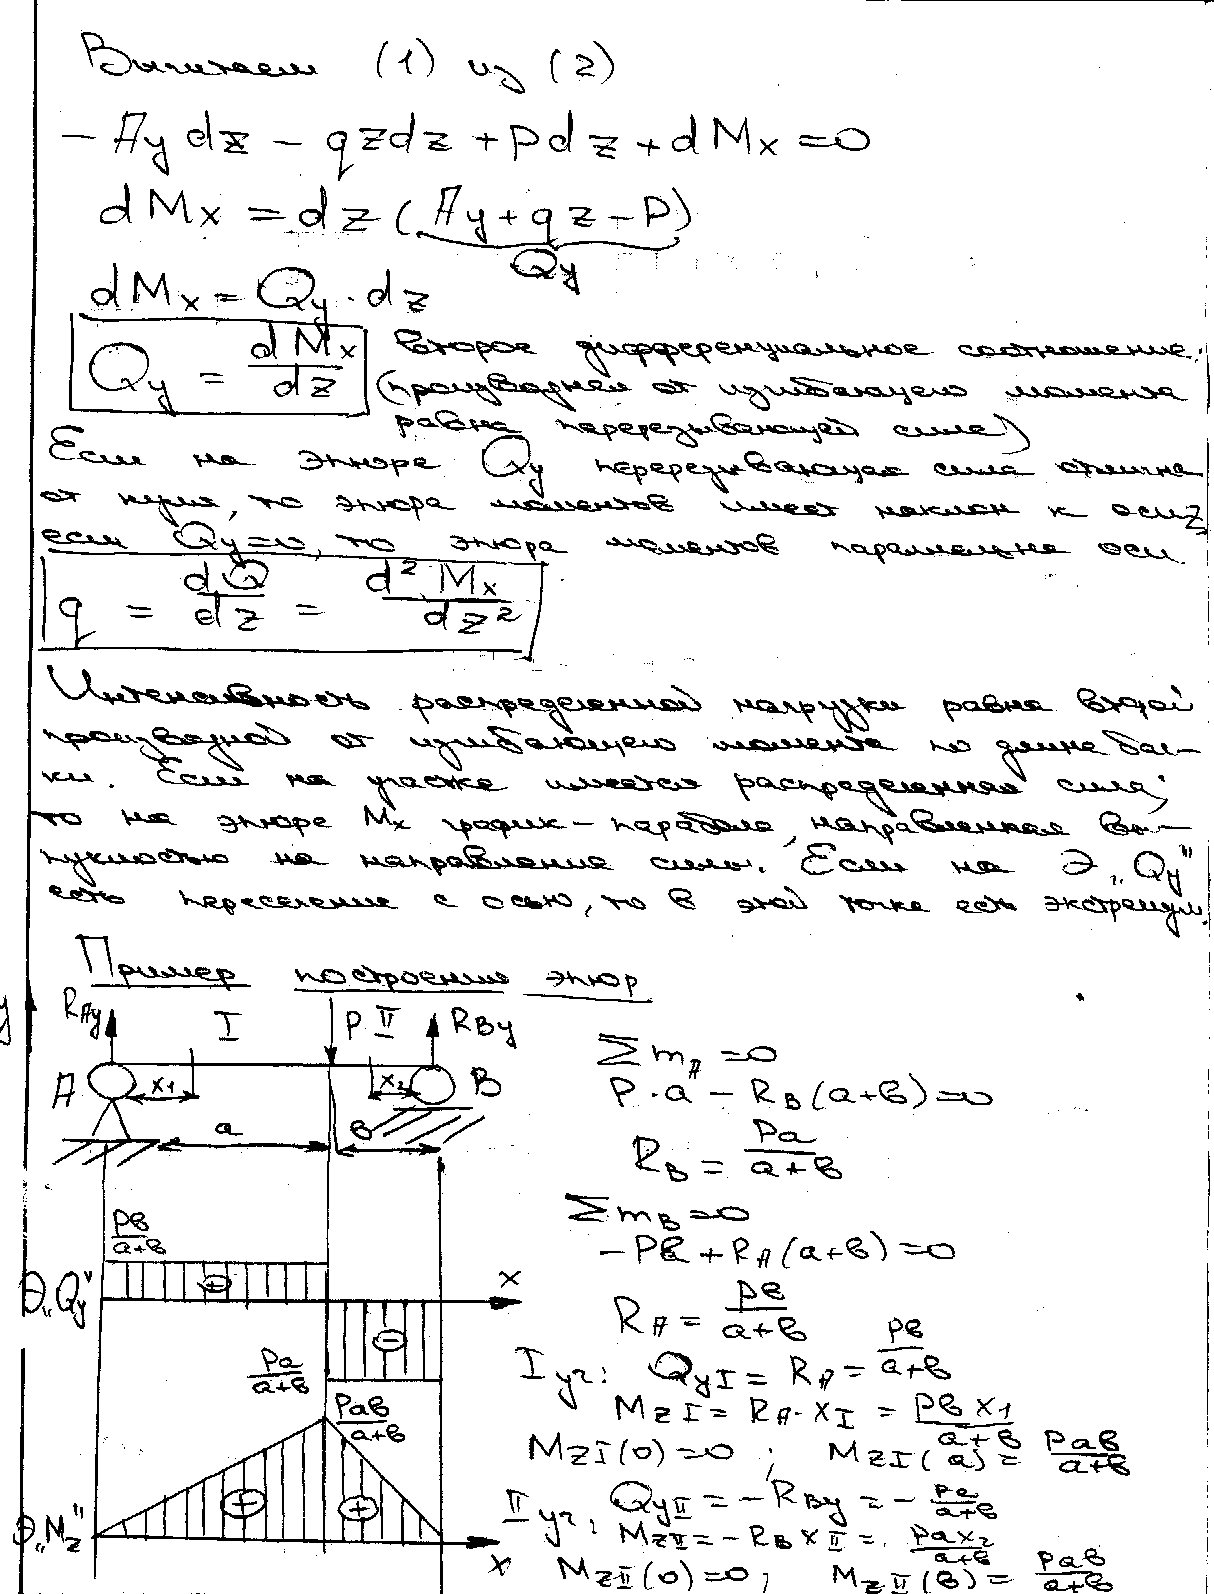 Вычитаем (1) из (2)
- Ay dz - qzdz + Pdz + dMx = 0
dMx = dz (Ay + qz - P)
Qy
dMx = Qy · dz
Qy = dMx/dz второе дифференциальное соотношение.
(производная от изгибающего момента
равна перерезывающей силе)
Если на эпюре Qy перерезывающая сила отлична
от нуля, то эпюра моментов имеет наклон к оси z,
если Qy=0, то эпюра моментов параллельна оси.
q = dQ/dz = d²Mx/dz²
Интенсивность распределенной нагрузки равна второй
производной от изгибающего момента по длине бал-
ки. Если на участке имеется распределенная сила,
то на эпюре Mx график - парабола, направленная вы-
пуклостью на направление силы. Если на Э„Qy"
есть пересечение с осью, то в этой точке есть экстремум.
Пример построения эпюр
y RAy I P II RBy
A x1 x2 B
a в
Σ mA = 0
P·a - RB(a+в) = 0
RB = Pa/(a+в)
Σ mB = 0
- Pв + RA(a+в) = 0
RA = Pв/(a+в)
Pв/(a+в)
Э„Qy" + x
-
Pa/(a+в)
I уч: QyI = RA = Pв/(a+в)
MzI = RA·xI = Pв x1/(a+в)
MzI(0) = 0; MzI(a) = Paв/(a+в)
II уч: QyII = -RBy = - Pa/(a+в)
MzII = -RB xII = Pax2/(a+в)
MzII(0) = 0; MzII(в) = Paв/(a+в)
Paв/(a+в)
Э„Mz" + + x